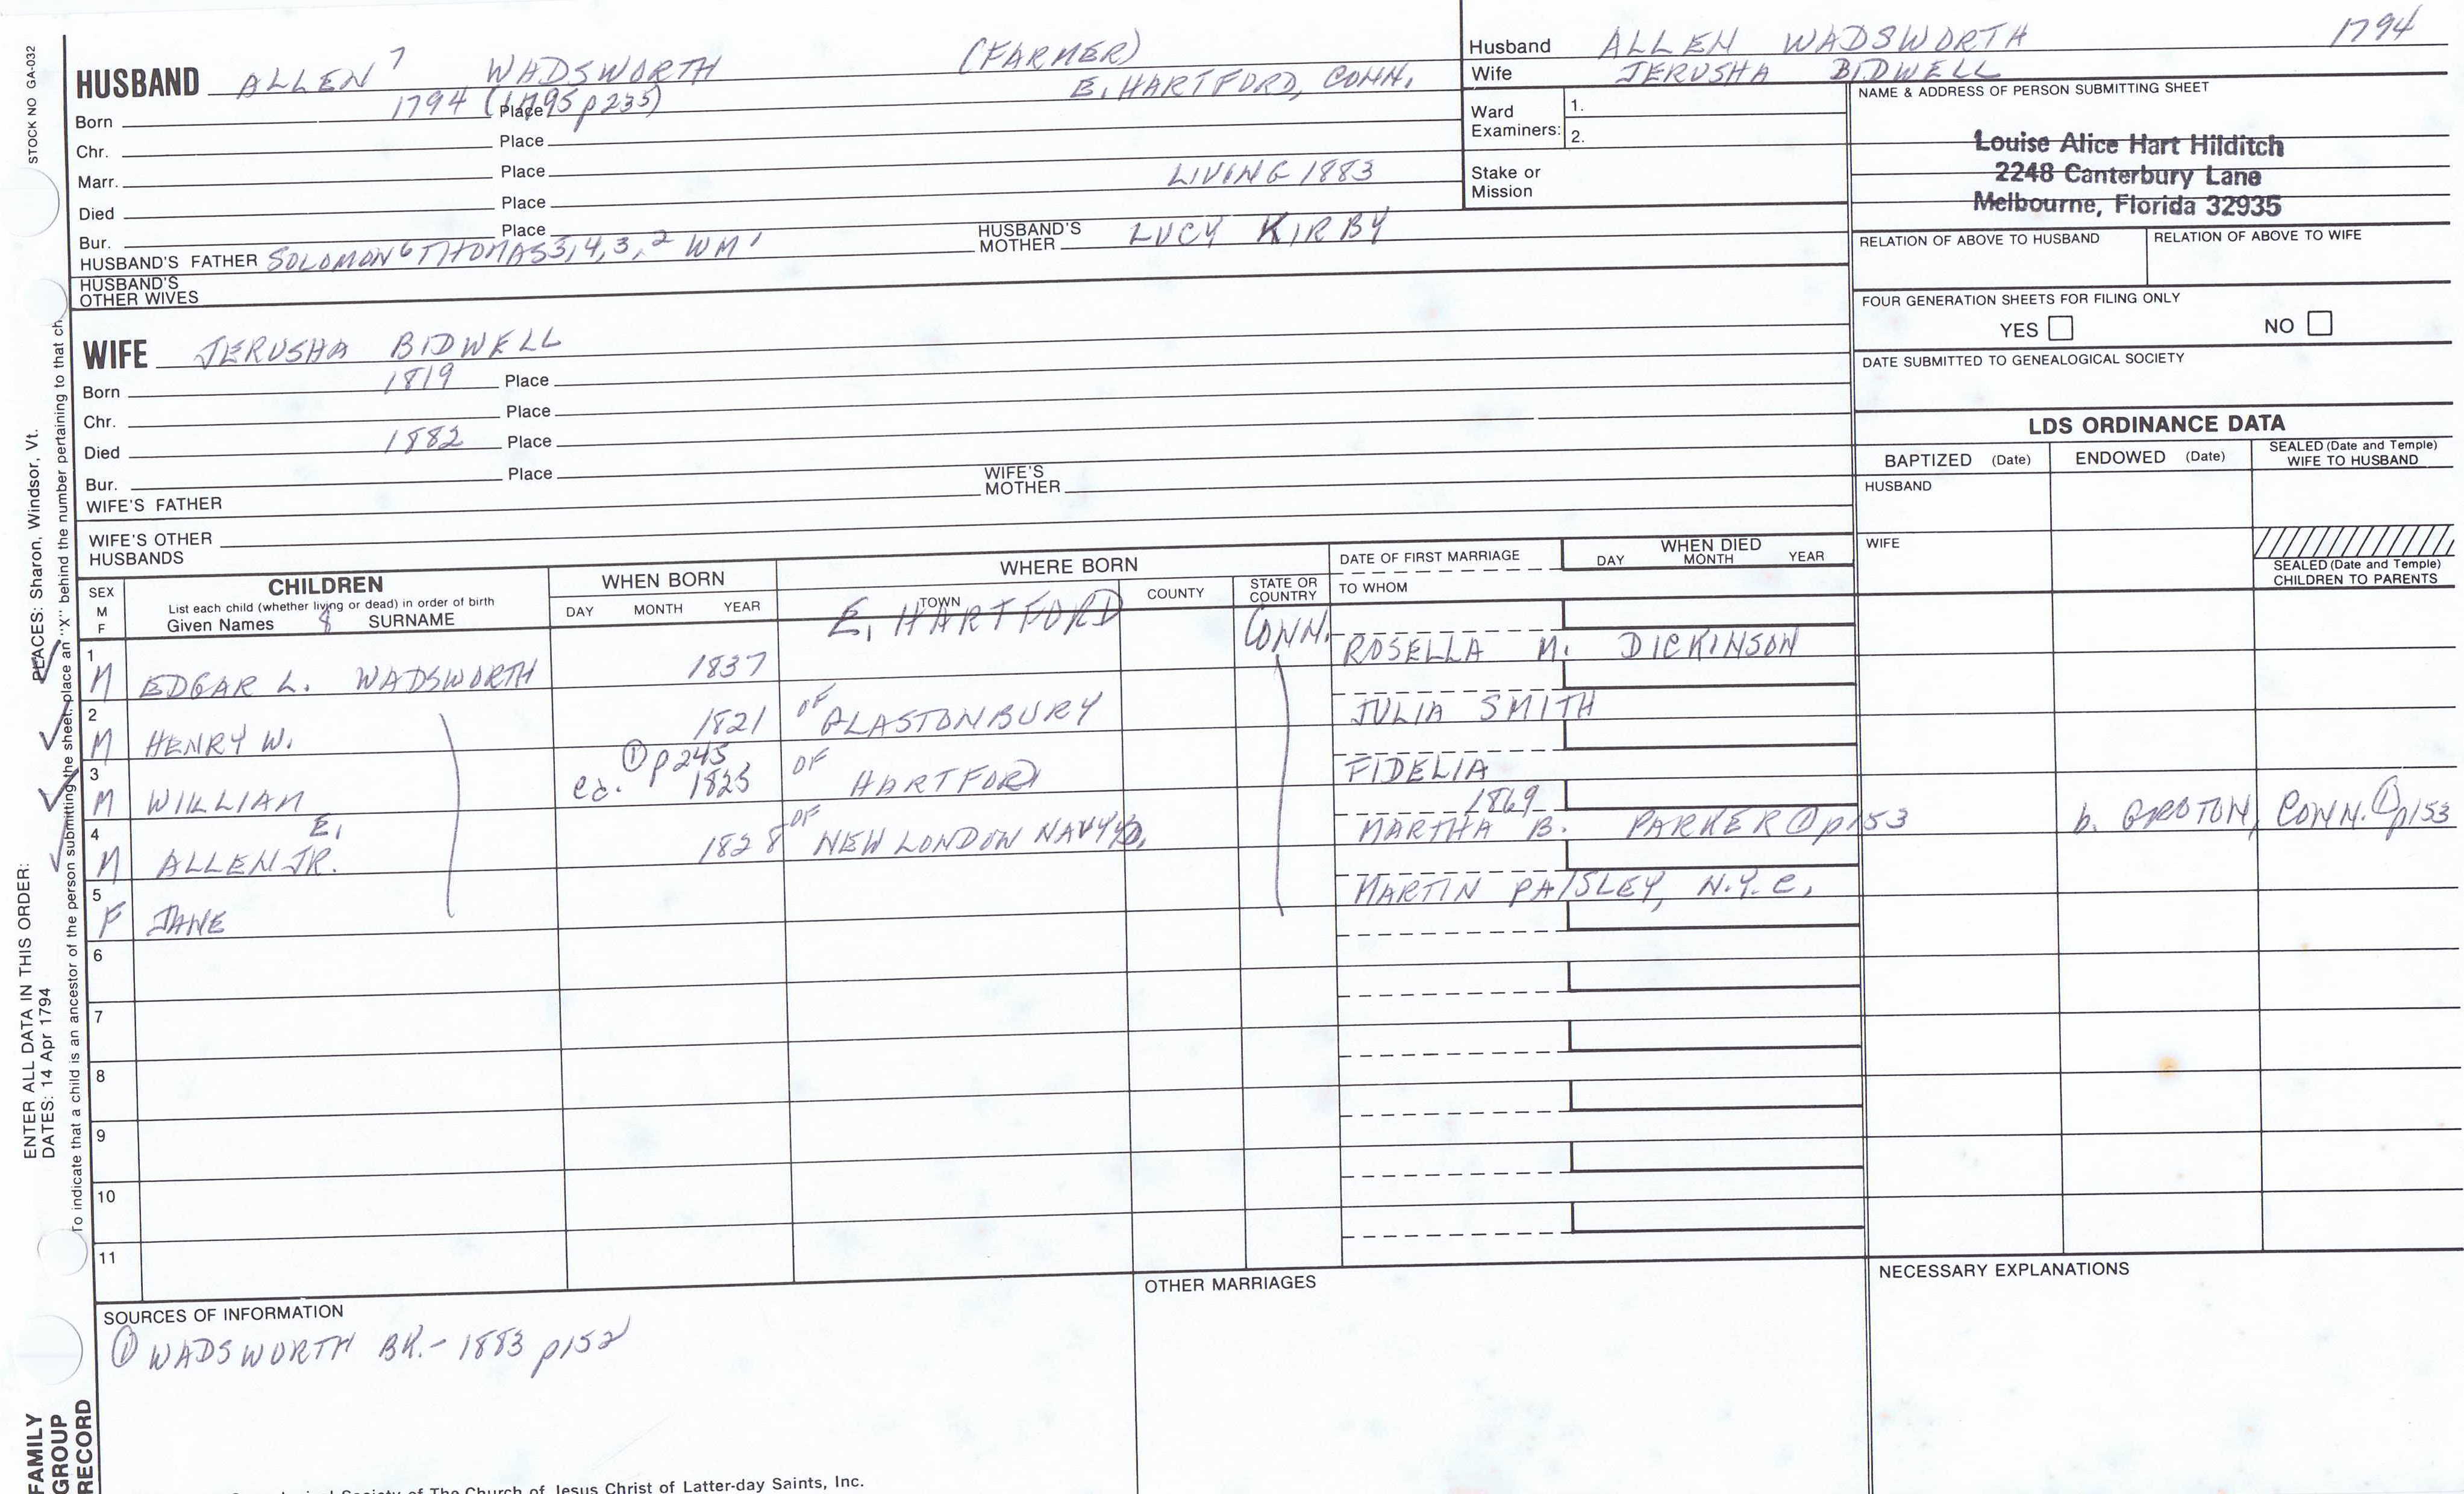 STOCK NO GA-032
HUSBAND ALLEN 7 WADSWORTH (FARMER)
Born 1794 (1795 p235) Place E. HARTFORD, CONN.
Chr. Place
Marr. Place
Died Place LIVING 1883
Bur. Place
HUSBAND'S FATHER SOLOMON 6 THOMAS 5, 4, 3, 2 WM 1 HUSBAND'S MOTHER LUCY KIRBY
HUSBAND'S OTHER WIVES
WIFE JERUSHA BIDWELL
Born 1819 Place
Chr. Place
Died 1882 Place
Bur. Place
WIFE'S FATHER WIFE'S MOTHER
WIFE'S OTHER HUSBANDS
Husband ALLEN WADSWORTH 1794
Wife JERUSHA BIDWELL
Ward Examiners: 1.
2.
Stake or Mission
NAME & ADDRESS OF PERSON SUBMITTING SHEET
Louise Alice Hart Hilditch
2248 Canterbury Lane
Melbourne, Florida 32935
RELATION OF ABOVE TO HUSBAND RELATION OF ABOVE TO WIFE
FOUR GENERATION SHEETS FOR FILING ONLY
YES NO
DATE SUBMITTED TO GENEALOGICAL SOCIETY
LDS ORDINANCE DATA
BAPTIZED (Date) ENDOWED (Date) SEALED (Date and Temple) WIFE TO HUSBAND
HUSBAND
WIFE
SEALED (Date and Temple) CHILDREN TO PARENTS
SEX M F
CHILDREN
List each child (whether living or dead) in order of birth
Given Names 8 SURNAME
WHEN BORN
DAY MONTH YEAR
WHERE BORN
TOWN COUNTY STATE OR COUNTRY
DATE OF FIRST MARRIAGE
TO WHOM
WHEN DIED
DAY MONTH YEAR
1 M EDGAR L. WADSWORTH 1837 E. HARTFORD CONN. ROSELLA M. DICKINSON
2 M HENRY W. 1821 OF GLASTONBURY JULIA SMITH
3 M WILLIAM ca. ① p245 1825 OF HARTFORD FIDELIA
4 M ALLEN E. JR. 1828 OF NEW LONDON NAVY YD. 1869 MARTHA B. PARKER ① p153 b. GROTON, CONN. ① p153
5 F JANE MARTIN PAISLEY, N.Y.C.
6
7
8
9
10
11
SOURCES OF INFORMATION
① WADSWORTH BK. - 1883 p152
OTHER MARRIAGES
NECESSARY EXPLANATIONS
ENTER ALL DATA IN THIS ORDER:
DATES: 14 Apr 1794
PLACES: Sharon, Windsor, Vt.
To indicate that a child is an ancestor of the person submitting the sheet, place an "X" behind the number pertaining to that ch
FAMILY GROUP RECORD
Society of The Church of Jesus Christ of Latter-day Saints, Inc.